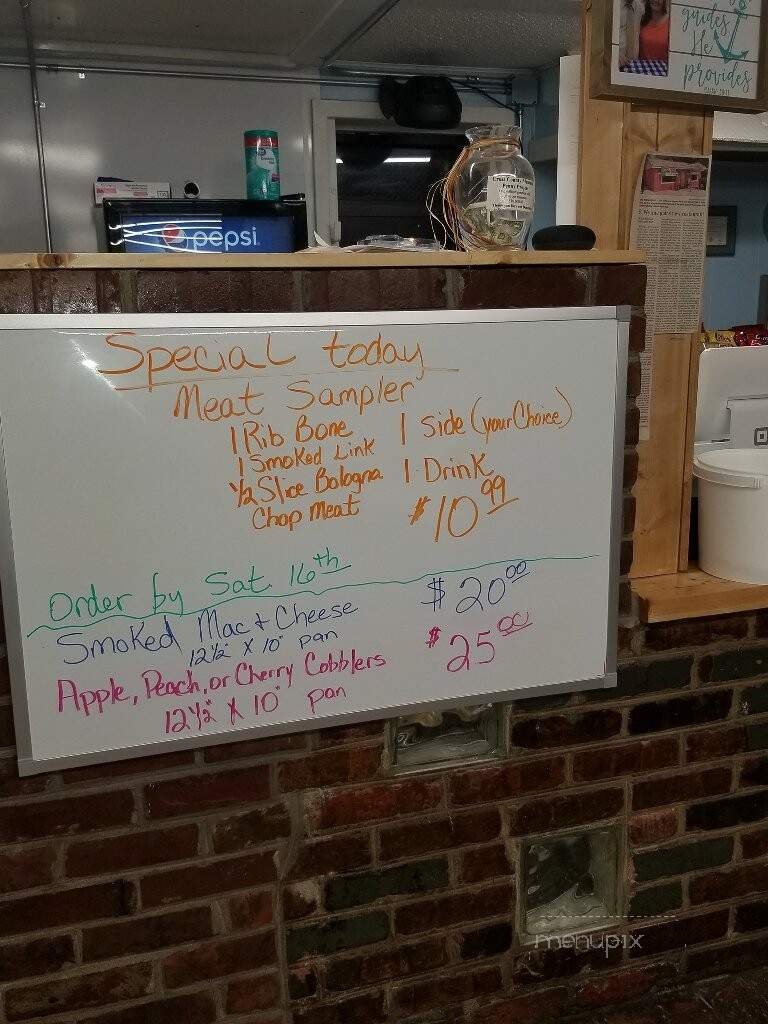 guides
He
provides
pepsi
Penny
Special today
Meat Sampler
1 Rib Bone
1 Smoked Link
1/2 Slice Bologna
Chop Meat
1 Side (your Choice)
1 Drink
$10.99
Order by Sat. 16th
Smoked Mac & Cheese
12½" X 10" pan
$20.00
Apple, Peach, or Cherry Cobblers
12½" X 10" pan
$25.00
menupix